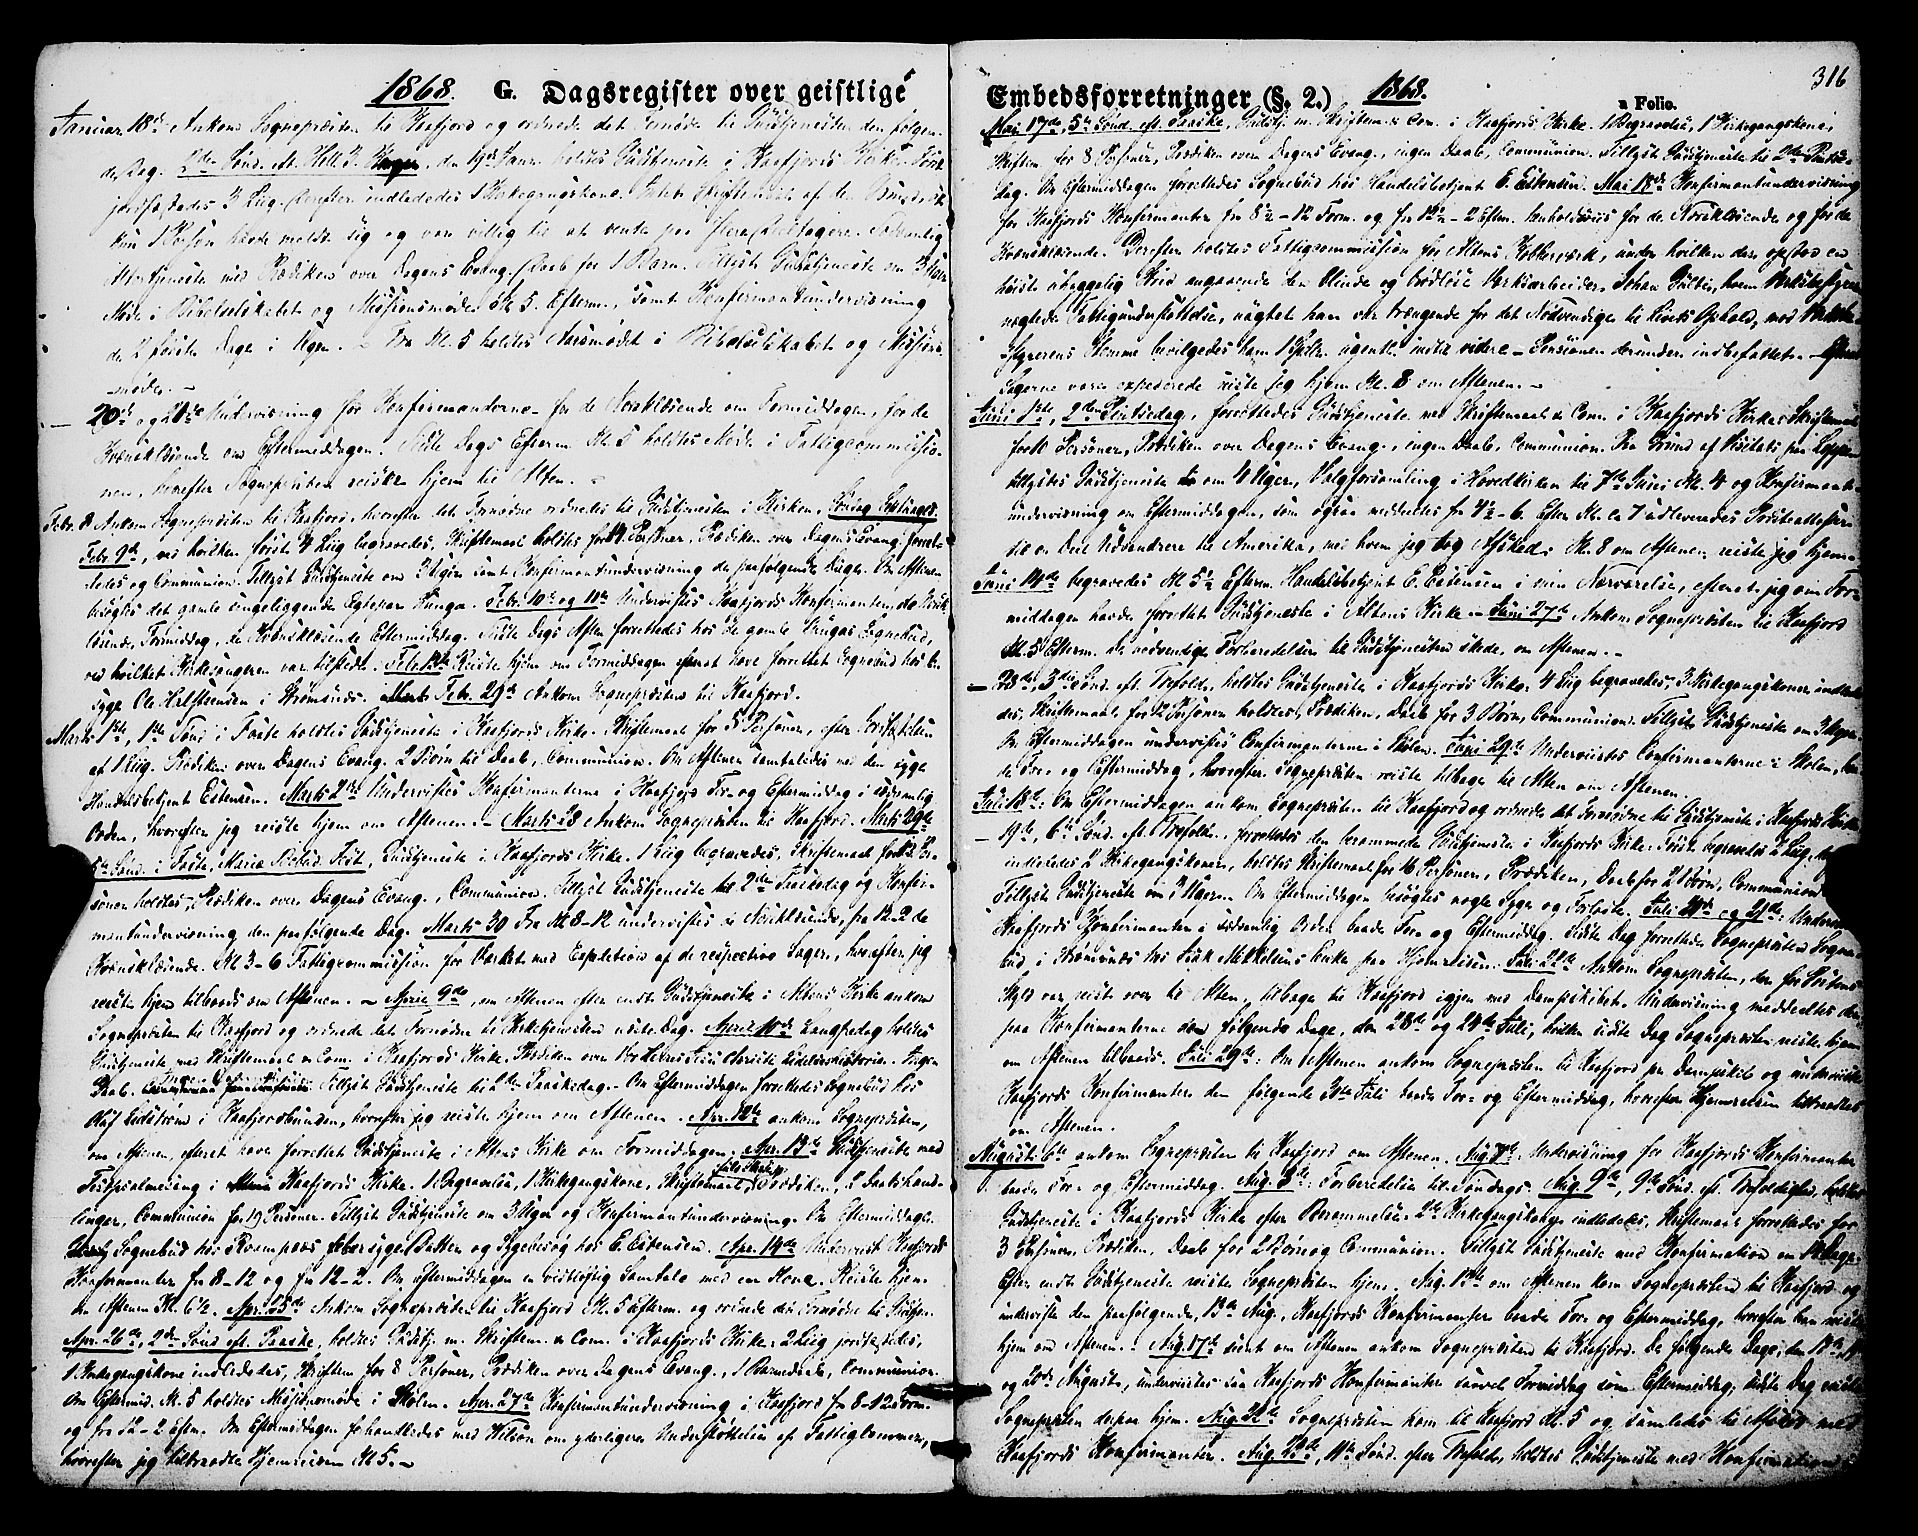 1868. G. Dagsregister over geistlige
Januar 18de Ankom Sognepræsten til Kaafjord og ordnede det Fornødne til Gudstjenesten den følgen-
de Dag. 2den Sønd. eft. Hell. 3 Konger, den 19de Januar holdtes Gudstjeneste i Kaafjords Kirke. Først
jordfæstedes 3 Liig. Derefter indlededes 1 Kirkegangskone.
kun 1 Person havde meldt sig og var villig til at vente paa flere Deeltagere. Sædvanlig
med Prædiken over Dagens Evang. Daab for 1 Barn. Tillyst Gudstjeneste om 3 Uger
Møde i Bibelselskabet og Missionsmøde Kl. 5 Efterm., samt Konfirmantundervisning
de 2 første Dage i Ugen. - Fra Kl. 5 holdtes Aarsmødet i Bibelselskabet og Missions-
møde. -
— 20de og 21de Undervisning for Konfirmanderne - for de Norsklæsende om Formiddagen, for de
Kvænsklæsende om Eftermiddagen. Sidste Dags Efterm. Kl. 5 holdtes Møde i Fattigcommissio-
nen, hvorefter Sognepræsten reiste hjem til Alten. -
Febr. 8 Ankom Sognepræsten til Kaafjord, hvorefter det Fornødne ordnedes til Gudstjenesten i Kirken,
Febr. 9de, ved hvilken først 4 Liig begravedes, Skriftemaal holdtes for Personer, Prædiken over Dagens Evang.
ledes og Communion. Tillyst Gudstjeneste om 3 Uger samt Konfirmantundervisning de paafølgende Dage. Om Aftenen
besøgtes det gamle sengeliggende Egtepar Runga. Febr. 10de og 11te Undervistes Kaafjords Konfirmanter, de Norsk-
læsende Formiddag, de Kvænsklæsende Eftermiddag. Sidste Dags Aften forrettedes hos de gamle Rungas Sognebud,
ved hvilket Kirkesangeren var tilstede. Febr. 12te Reiste hjem om Formiddagen efterat have forrettet Sognebud hos den
syge Ole i Strømsnes. Febr. 29de Ankom Sognepræsten til Kaafjord.
Marts 1ste, 1ste Sønd. i Faste holdtes Gudstjeneste i Kaafjords Kirke. Skriftemaal for 5 Personer, efter Jordfæstelsen
af 1 Liig. Prædiken over Dagens Evang. 2 Børn til Daab, Communion. Om Aftenen samtaledes med den syge
Handelsbetjent Estensen. Marts 2den Undervistes Konfirmanterne i Kaafjord For- og Eftermiddag i sædvanlig
Orden, hvorefter jeg reiste hjem om Aftenen. - Marts 28 Ankom Sognepræsten til Kaafjord. Marts 29de
5te Sønd. i Faste, Mariæ Bebud. Fest, Gudstjeneste i Kaafjords Kirke. 1 Liig begravedes, Skriftemaal for 12 Per-
soner holdtes, Prædiken over Dagens Evang., Communion. Tillyst Gudstjeneste til 2den Paaskedag og Konfir-
mantundervisning den paafølgende Dag. Marts 30 Fra Kl. 8-12 undervistes de Norsklæsende, fra 12-2 de
Kvænsklæsende. Kl. 3-6 Fattigcommission for Værket med Expedition af de respective Sager, hvorefter jeg
reiste hjem tilbaads om Aftenen. - April 9de, om Aftenen efter endt Gudstjeneste i Altens Kirke ankom
Sognepræsten til Kaafjord og ordnede det Fornødne til Kirketjenesten næste Dag. April 10de Langfredag holdtes
Gudstjeneste med Skriftemaal & Com. i Kaafjords Kirke. Prædiken over vor Herres Jesu Christi Lidelseshistorie. Ingen
Daab. Tillyst Gudstjeneste til 2den Paaskedag. - Om Eftermiddagen forrettedes Sognebud hos
Olaf Eidstrøm i Kaafjordbunden, hvorefter jeg reiste hjem om Aftenen. Apr. 12te ankom Sognepræsten,
om Aftenen, efterat have forrettet Gudstjeneste i Altens Kirke om Formiddagen. Apr. 13de Gudstjeneste med
i Kaafjords Kirke. 1 Begravelse, 1 Kirkegangskone, Skriftemaal, Prædiken, 2 Daabshand-
linger, Communion for 19 Personer. Tillyst Gudstjeneste om 3 Uger og Konfirmantundervisning. Om Eftermiddagen
Sognebud hos syge Datter og Sygebesøg hos E. Estensen. Apr. 14de Undervist Kaafjords
Konfirmanter fra 8-12 og fra 12-2. Om Eftermiddagen en vidtløftig Samtale med en Kone. Reiste hjem
om Aftenen Kl. 6½. Apr. 25de Ankom Sognepræsten til Kaafjord Kl. 5 Efterm. og ordnede det Fornødne til Gudstjen.
Apr. 26de, 2den Sønd. eft. Paaske, holdtes Gudstj. m. Skriftem. & Com. i Kaafjords Kirke. 2 Liig jordfæstedes,
1 Kirkegangskone indlededes, Skriftem. for 8 Personer, Prædiken over Dagens Evang., 1 Barnedaab, Communion.
Om Eftermid. Kl. 5 holdtes Missionsmøde i Skolen. Apr. 27de Konfirmantundervisning i Kaafjord fr. 8-12 Form.
og fra 12-2 Efterm. Om Eftermiddagen forhandledes med Wilson om yderligere Understøttelse af Fattiglemmer,
hvorefter jeg tiltraadte Hjemreisen Kl. 5. -
Embedsforretninger (§. 2.) 1868.
316
a Folio.
Mai 17de, 5te Sønd. eft. Paaske, Gudstj. m. Skriftem. & Com. i Kaafjords Kirke. 1 Begravelse, 1 Kirkegangskone,
Skriftem. for 8 Personer, Prædiken over Dagens Evang., ingen Daab, Communion. Tillyst Gudstjeneste til 2den Pintse-
dag. Om Eftermiddagen forrettedes Sognebud hos Handelsbetjent E. Estensen. Mai 18de Konfirmantundervisning
for Kaafjords Konfirmanter fra 8½-12 Form. og fra 12½-2 Efterm. henholdsviis for de Norsklæsende og for de
Kvænsklæsende. Derefter holdtes Fattigcommission for Altens Kobberværk, under hvilken der opstod en
høist ubehagelig Strid angaaende den blinde og brødløse Værksarbeider, Johan, hvem Værksbestyreren
negtede Fattigunderstøttelse, uagtet han var trængende for det Nødvendige til Livets Ophold, mod
Styrerens Stemme bevilgedes ham 1 Spdlr. ugentl. indtil videre - Pensionen derunder indbefattet. - Efterat
Sagerne vare expederede reiste jeg hjem Kl. 8 om Aftenen. -
Juni 1ste, 2den Pintsedag, forrettedes Gudstjeneste med Skriftemaal & Com. i Kaafjords Kirke. Skriftemaal
for Personer, Prædiken over Dagens Evang., ingen Daab, Communion. Paa Grund af Visitats paa Loppen
tillystes Gudstjeneste om 4 Uger, Valgforsamling i Hovedkirken til 7de Juni Kl. 4 og Konfirmant-
undervisning om Eftermiddagen, som ogsaa meddeltes fra 4½-6. Efter Kl. ca 7 udleveredes Præsteattester
til en Deel Udvandrere til Amerika, med hvem jeg tog Afsked. Kl. 8 om Aftenen reiste jeg hjem. -
Juni 14de begravedes Kl. 5½ Efterm. Handelsbetjent E. Estensen i min Nærværelse, efterat jeg om For-
middagen havde forrettet Gudstjeneste i Altens Kirke. - Juni 27de Ankom Sognepræsten til Kaafjord
Kl. 5 Efterm. De nødvendige Forberedelser til Gudstjenesten skede om Aftenen. -
— 28de, 3die Sønd. eft. Trefold., holdtes Gudstjeneste i Kaafjords Kirke. 4 Liig begravedes, 3 Kirkegangskoner indlede-
des, Skriftemaal for 12 Personer holdtes, Prædiken, Daab for 3 Børn, Communion. Tillyst Gudstjeneste om 3 Uger.
Om Eftermiddagen undervistes Confirmanterne i Skolen. Juni 29de Undervistes Confirmanterne i Skolen,
de For- og Eftermiddag, hvorefter Sognepræsten reiste tilbage til Alten om Aftenen.
Juli 18de: Om Eftermiddagen ankom Sognepræsten til Kaafjord og ordnede det Fornødne til Gudstjeneste i Kaafjords Kirke
— 19de, 6te Sønd. eft. Trefold., forrettedes den berammede Gudstjeneste i Kaafjords Kirke. Først begravedes 2 Liig,
indlededes 2 Kirkegangskoner, holdtes Skriftemaal for 16 Personer, Prædiken, Daab for 2 Børn, Communion
Tillyst Gudstjeneste om 3 Uger. Om Eftermiddagen besøgtes nogle Syge og Forladte. Juli 20de og 21de: Undervistes
Kaafjords Konfirmanter i sædvanlig Orden baade For- og Eftermiddag. Sidste Dag forrettede Sognepræsten Sogne-
bud i Strømsnes hos Isak Mikkelsens Enke paa Hjemreisen. Juli 22de Ankom Sognepræsten, der for
Skyld var reist over til Alten, tilbage til Kaafjord igjen med Dampskibet. Undervisning meddeeltes der-
paa Konfirmanterne følgende Dage, den 23de og 24de Juli, hvilken sidste Dag Sognepræsten reiste hjem
om Aftenen tilbaads. Juli 29de: Om Aftenen ankom Sognepræsten til Kaafjord pr Dampskib og underviste
Kaafjords Konfirmanter den følgende 30te Juli baade For- og Eftermiddag, hvorefter Hjemreisen tiltraadtes
om Aftenen.
Augusti 6te ankom Sognepræsten til Kaafjord om Aftenen. Aug. 7de: Undervisning for Kaafjords Konfirmanter
baade For- og Eftermiddag. Aug. 8de: Forberedelse til Søndags. Aug. 9de, 9de Sønd. eft. Trefoldighed, holdtes
Gudstjeneste i Kaafjords Kirke efter Berammelse. 2 Kirkegangskoner indlededes, Skriftemaal forrettedes for
3 Personer, Prædiken, Daab for 2 Børn og Communion. Tillyst Gudstjeneste med Konfirmation om 14 Dage.
Efter endt Gudstjeneste reiste Sognepræsten hjem. Aug. 12te om Aftenen kom Sognepræsten til Kaafjord og
underviste den paafølgende, 13de Aug., Kaafjords Konfirmanter baade For- og Eftermiddag, hvorefter han reiste
hjem om Aftenen. - Aug. 17de sildt om Aftenen ankom Sognepræsten til Kaafjord. De følgende Dage, den 18de, 19de
og 20de Augusti, undervistes saa Kaafjords Konfirmanter saavel Formiddag som Eftermiddag; sidste Dag reiste
Sognepræsten derpaa hjem. Aug. 22de Sognepræsten kom til Kaafjord Kl. 5 og samledes til Afsked med
Kaafjords Konfirmanter. Aug. 23de, 11te Sønd. efter Trefold., holdtes Gudstjeneste med Konfirmation